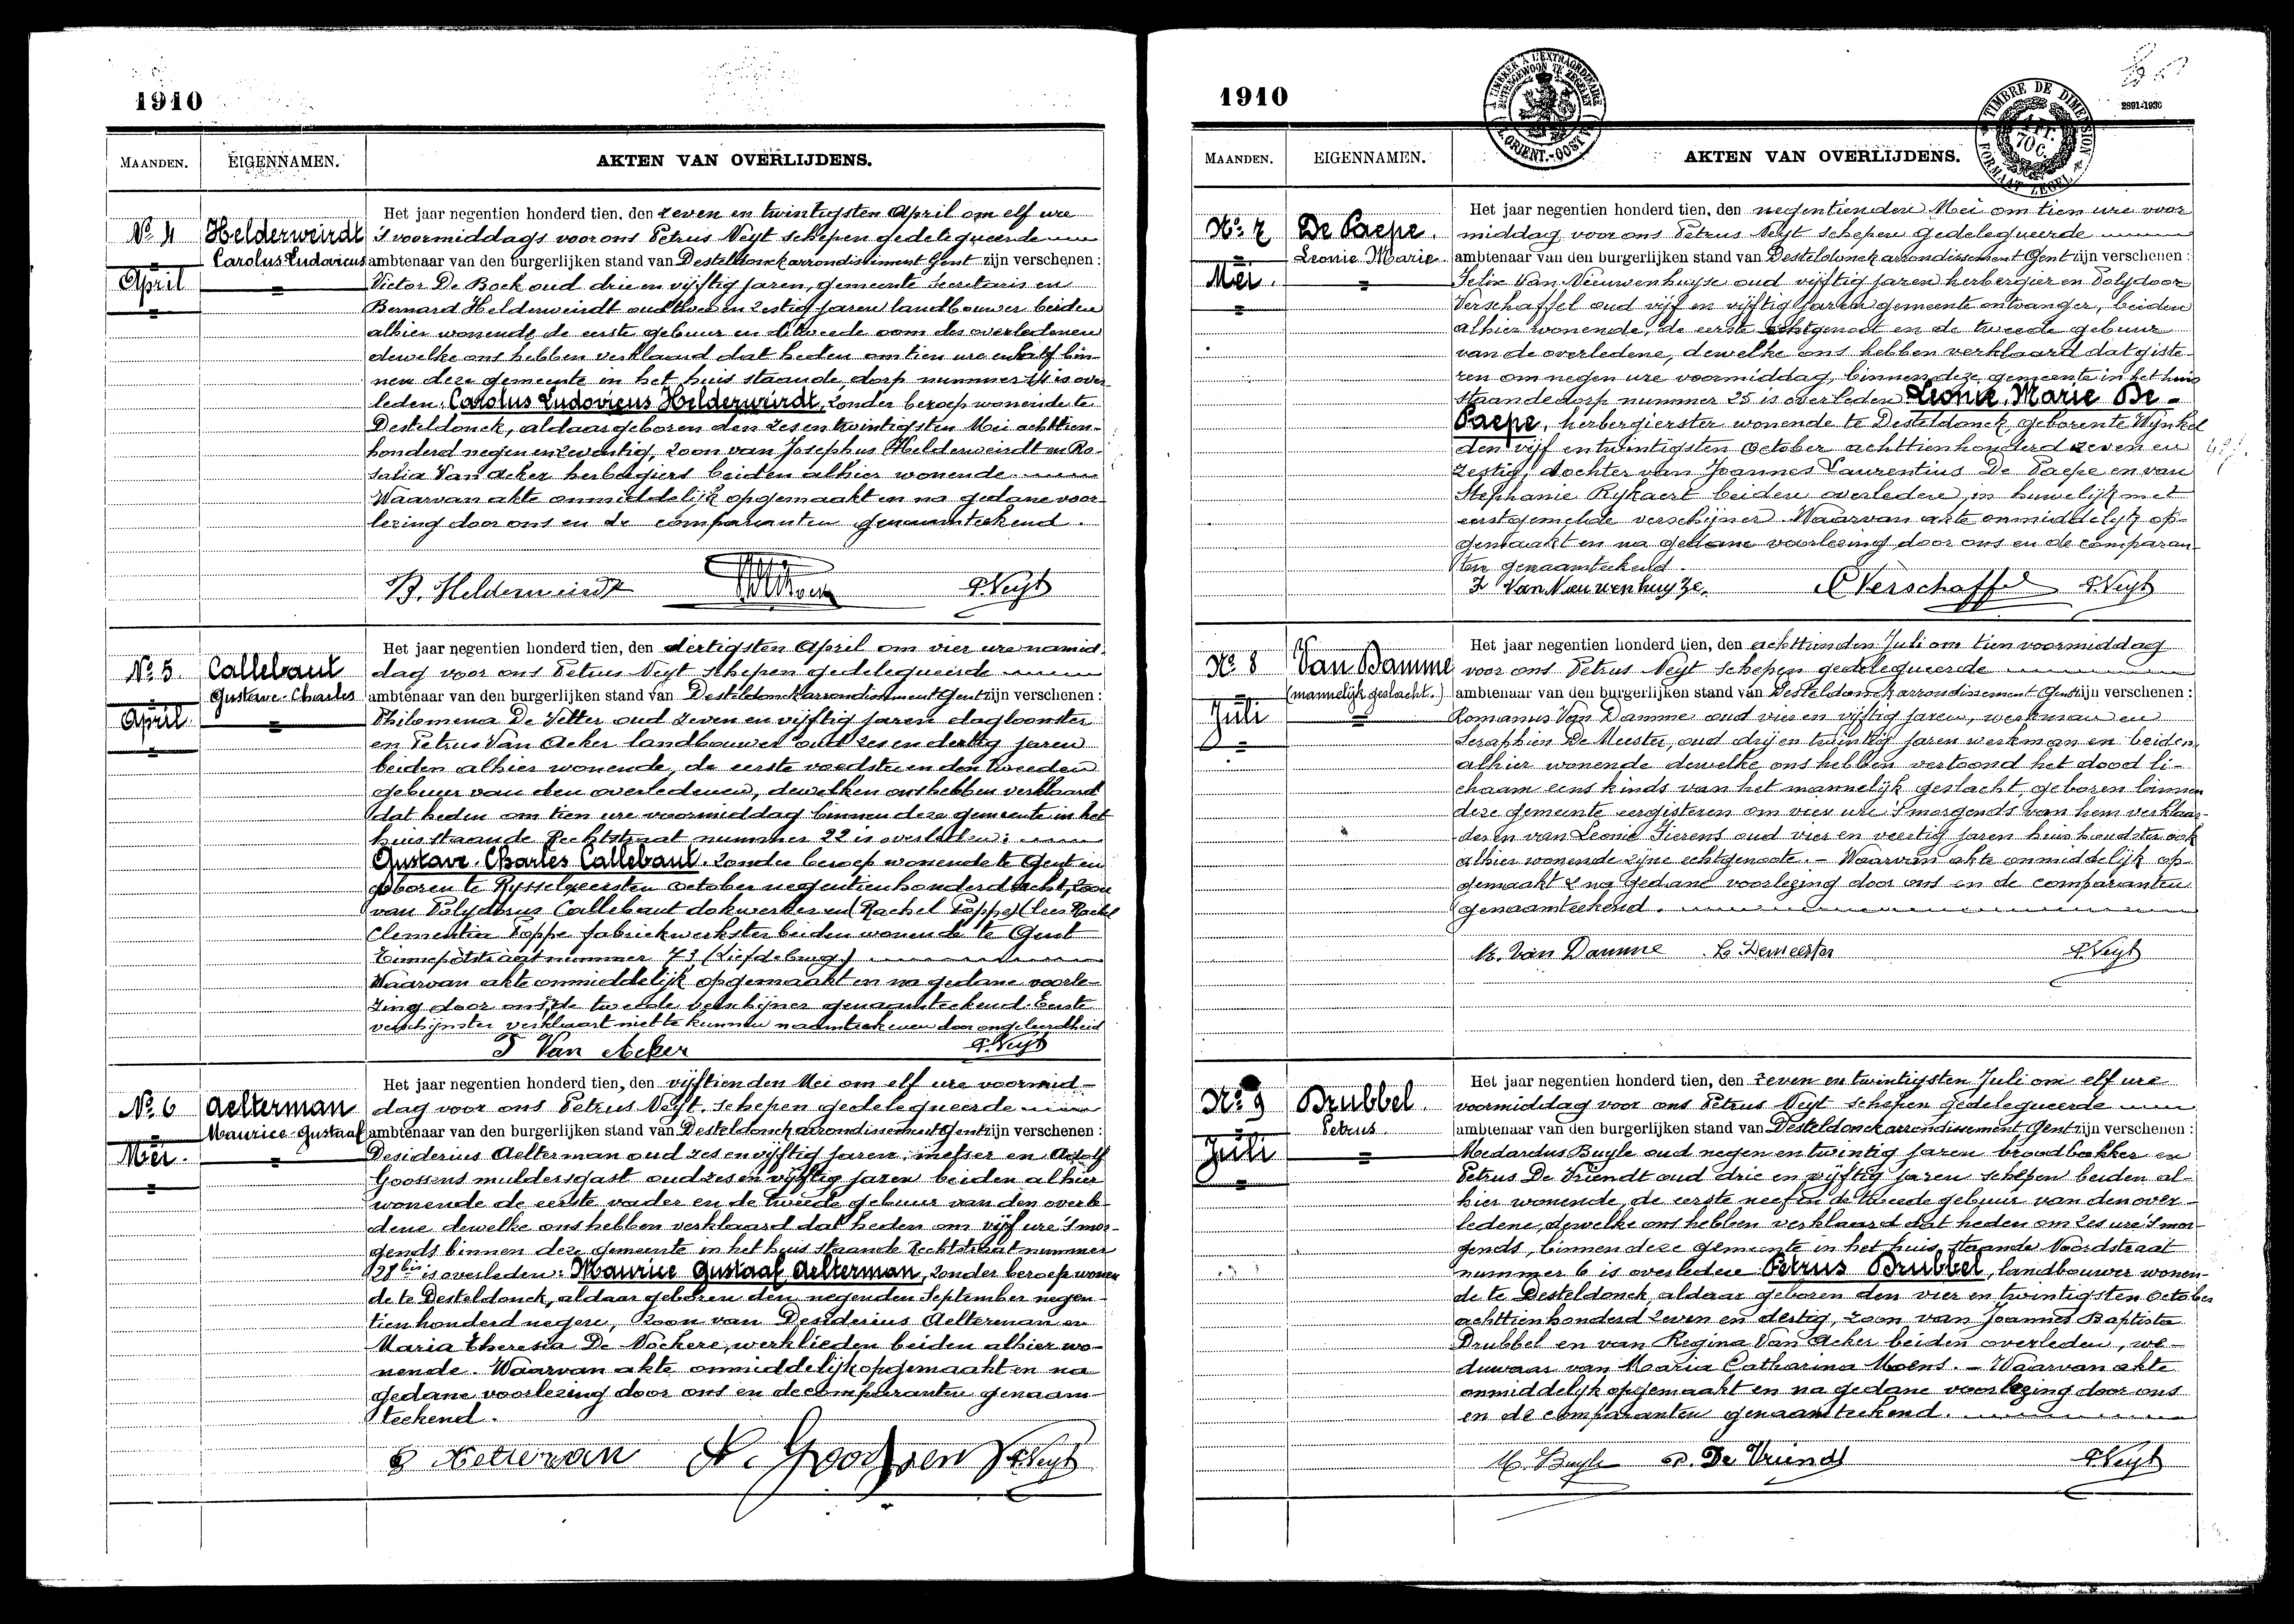 1910
MAANDEN. EIGENNAMEN. AKTEN VAN OVERLIJDENS.
Het jaar negentien honderd tien, den zeven en twintigsten April om elf ure
No 4 Helderweirdt 's voormiddags voor ons Petrus Neyt schepen gedelegueerde
Carolus Ludovicus ambtenaar van den burgerlijken stand van Desteldonck arrondissement Gent zijn verschenen :
April Victor De Bock oud drie en vijftig jaren, gemeente secretaris en
Bernard Helderweirdt oud twee en zestig jaren landbouwer beiden
alhier wonende de eerste gebuur en de tweede oom des overledenen
dewelke ons hebben verklaard dat heden om tien ure en half bin-
nen deze gemeente in het huis staande, dorp nummer is over-
leden: Carolus Ludovicus Helderweirdt, zonder beroep wonende te
Desteldonck, aldaar geboren den zes en twintigsten Mei achttien-
honderd negen en zeventig, zoon van Josephus Helderweirdt en Ro-
salia Van Acker herbergiers beiden alhier wonende
Waarvan akte onmiddelijk opgemaakt en na gedane voor-
lezing door ons en de comparanten genaamteekend.
B. Helderweirdt P. Neyt
Het jaar negentien honderd tien, den dertigsten April om vier ure namid-
No 5. Callebaut dag voor ons Petrus Neyt schepen gedelegueerde
Gustave-Charles ambtenaar van den burgerlijken stand van Desteldonck arrondissement Gent zijn verschenen :
April Philomena De Vetter oud zeven en vijftig jaren dagloonster
en Petrus Van Acker landbouwer oud zes en dertig jaren
beiden alhier wonende, de eerste voedster en den tweeden
gebuur van den overledenen, dewelken ons hebben verklaard
dat heden om tien ure voormiddag binnen deze gemeente in het
huis staande Rechtstraat nummer 22 is overleden:
Gustave Charles Callebaut, zonder beroep wonende te Gent en
geboren te Ryssel eersten october negentienhonderd acht, zoon
van Polydorus Callebaut dokwerker en (Rachel Poppe) (lees Rachel
Clementia Poppe fabriekwerkster beiden wonende te Gent
nummer 73 (Liefdeburg)
Waarvan akte onmiddelijk opgemaakt en na gedane voorle-
zing door ons, de tweede verschijner genaamteekend. Eerste
verschijnster verklaart niet te kunnen naamteekenen door ongeleerdheid
P Van Acker P. Neyt
Het jaar negentien honderd tien, den vijftienden Mei om elf ure voormid-
No 6 Aelterman dag voor ons Petrus Neyt schepen gedelegueerde
Maurice-Gustaaf ambtenaar van den burgerlijken stand van Desteldonck arrondissement Gent zijn verschenen :
Mei. Desiderius Aelterman oud zes en vijftig jaren metser en Adolf
Goossens muldersgast oud zes en vijftig jaren beiden alhier
wonende de eerste vader en de tweede gebuur van den overle-
dene dewelke ons hebben verklaard dat heden om vijf ure 's mor-
gends binnen deze gemeente in het huis staande Rechtstraat nummer
28 bis is overleden: Maurice Gustaaf Aelterman, zonder beroep wonen
de te Desteldonck, aldaar geboren den negenden September negen-
tien honderd negen, zoon van Desiderius Aelterman en
Maria Theresia De Nockere, werklieden beiden alhier wo-
nende. Waarvan akte onmiddelijk opgemaakt en na
gedane voorlezing door ons en de comparanten genaam-
teekend.
D Aelterman A. Goossens P. Neyt
1910
TIMBRE A L'EXTRAORDINAIRE BUITENGEWOON TE ZEGELEN
TIMBRE DE DIMENSION FORMAAT ZEGEL
2891-1936
MAANDEN. EIGENNAMEN. AKTEN VAN OVERLIJDENS.
Het jaar negentien honderd tien, den negentienden Mei om tien ure voor
No 7 De Paepe. middag voor ons Petrus Neyt schepen gedelegueerde
Leonie Marie ambtenaar van den burgerlijken stand van Desteldonck arrondissement Gent zijn verschenen :
Mei. Felix Van Nieuwenhuyse oud vijftig jaren herbergier en Polydoor
Verschaffel oud vijf en vijftig jaren gemeente ontvanger, beiden
alhier wonende, de eerste echtgenoot en de tweede gebuur
van de overledene, dewelke ons hebben verklaard dat giste-
ren om negen ure voormiddag, binnen deze gemeente in het huis
staande dorp nummer 25 is overleden Leonie Marie De-
Paepe, herbergierster wonende te Desteldonck, geboren te Wynkel
den vijf en twintigsten October achttienhonderd zeven en
zestig, dochter van Joannes Laurentius De Paepe en van
Stephanie Rykaert beiden overleden, in huwelijk met
eerstgemelde verschijner. Waarvan akte onmiddelijk op-
gemaakt en na gedane voorlezing door ons en de comparan-
ten genaamteekend.
F Van Nieuwenhuyze. P Verschaffel P. Neyt
Het jaar negentien honderd tien, den achttienden Juli om tien voormiddag
No 8 Van Damme voor ons Petrus Neyt schepen gedelegueerde
(mannelijk geslacht.) ambtenaar van den burgerlijken stand van Desteldonck arrondissement Gent zijn verschenen :
Juli Romanus Van Damme oud vier en vijftig jaren, werkman en
Seraphien De Meester, oud drij en twintig jaren werkman en beiden
alhier wonende dewelke ons hebben vertoond het dood li-
chaam eens kinds van het mannelijk geslacht, geboren binnen
deze gemeente eergisteren om vier ure 's morgends van hem verklaar-
der en van Leonie Gierens oud vier en veertig jaren huishoudster ook
alhier wonende zijne echtgenoote. - Waarvan akte onmiddelijk op-
gemaakt & na gedane voorlezing door ons en de comparanten
genaamteekend.
R. Van Damme S. Demeester P. Neyt
Het jaar negentien honderd tien, den zeven en twintigsten Juli om elf ure
No 9 Drubbel. voormiddag voor ons Petrus Neyt schepen gedelegueerde
Petrus. ambtenaar van den burgerlijken stand van Desteldonck arrondissement Gent zijn verschenen :
Juli Medardus Buyle oud negen en twintig jaren broodbakker en
Petrus De Vriendt oud drie en vijftig jaren schepen beiden al-
hier wonende, de eerste neef en de tweede gebuur van den over-
ledene, dewelke ons hebben verklaard dat heden om zes ure 's mor-
gends, binnen deze gemeente in het huis staande Noordstraat
nummer 6 is overleden Petrus Drubbel, landbouwer wonen-
de te Desteldonck, aldaar geboren den vier en twintigsten October
achttienhonderd zeven en dertig, zoon van Joannes Baptista
Drubbel en van Regina Van Acker beiden overleden, we-
duwaar van Maria Catharina Moens. - Waarvan akte
onmiddelijk opgemaakt en na gedane voorlezing door ons
en de comparanten genaamteekend.
M. Buyle P. De Vriendt P. Neyt